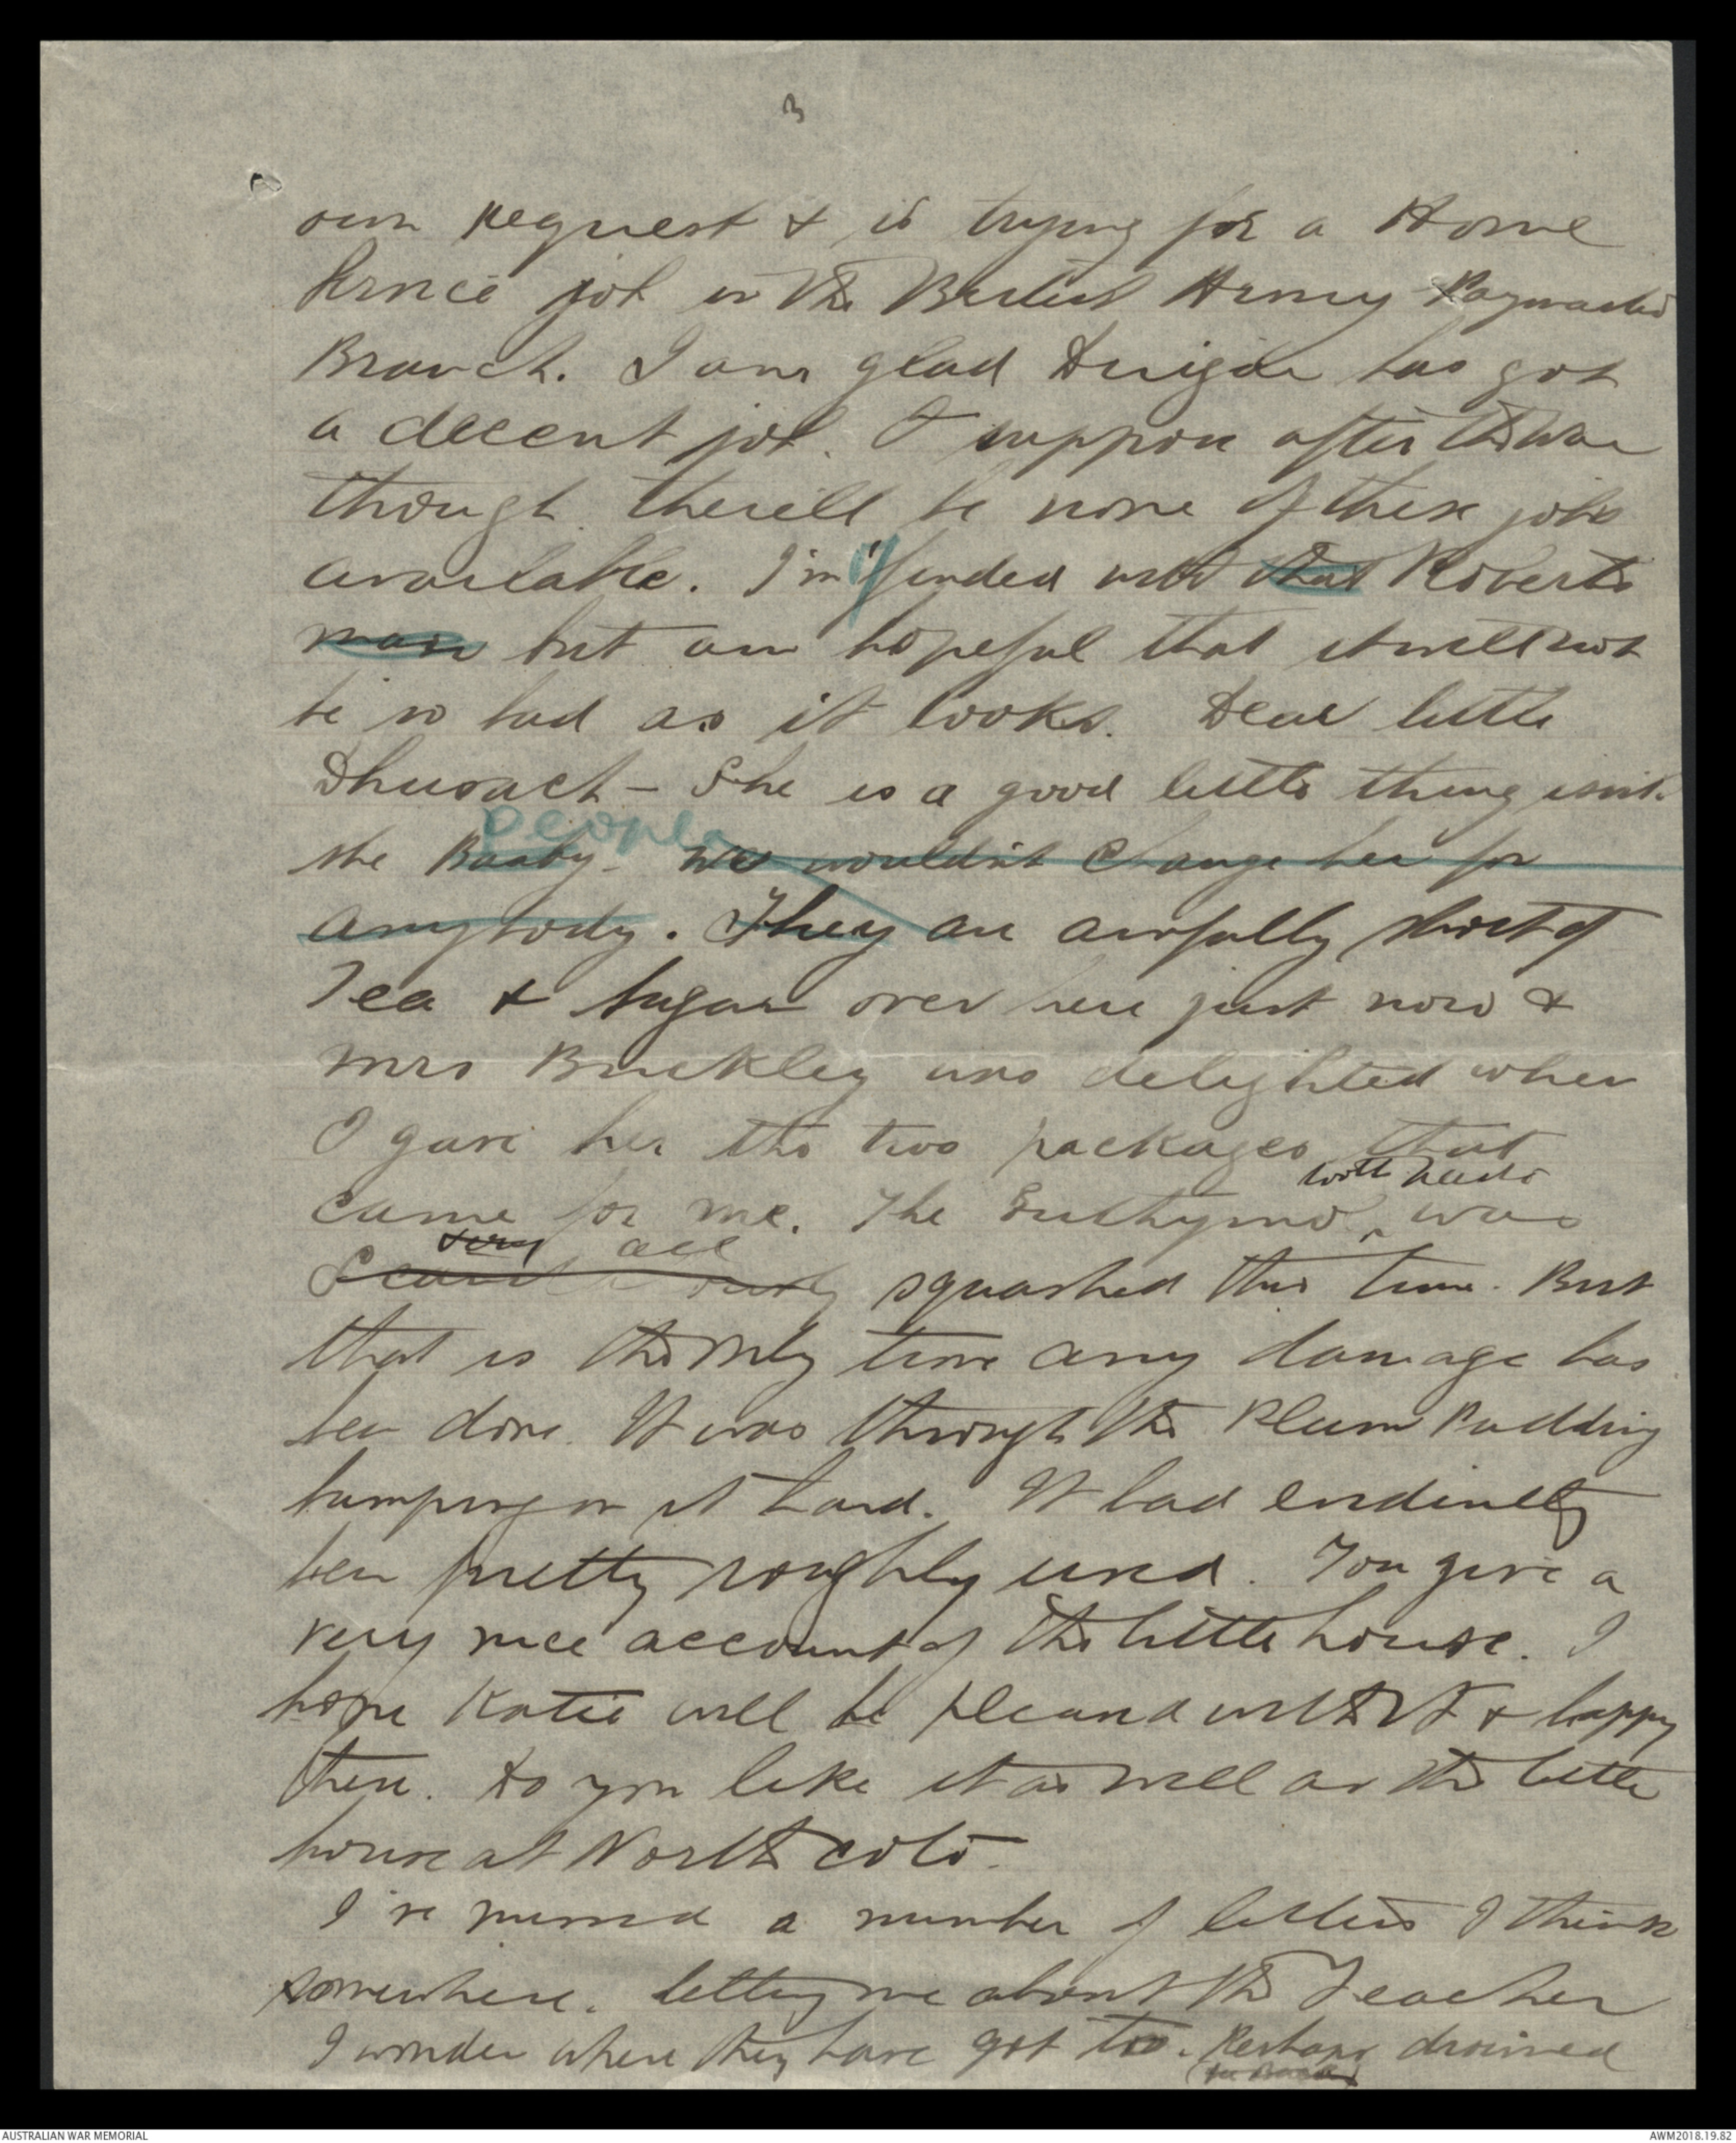 3
own request & is trying for a Home
Service job in the British Army Paymaster
Branch. I am glad has got
a decent job. I suppose after the war
though there'll be none of these jobs
available. I'm offended with that Roberts
man but am hopeful that it will not
be so bad as it looks. Dear little
Dhusach - She is a good little thing isn't
people
she Baaby. We wouldn't change her for
anybody. They are awfully short of
Tea & Sugar over here just now &
Mrs Buckley was delighted when
I gave her the two packages that
with heads
came for me. The Euthymol was
very all
squashed this time. But
that is the only time any damage has
been done. It was through the Plum Pudding
bumping on it hard. It had evidently
been pretty roughly used. You give a
very nice account of the little house. I
hope Katie will be pleased with it & happy
there. Do you like it as well as the little
house at Northcote.
I've missed a number of letters I think
somewhere. letting me about the Teacher
I wonder where they have got too. Perhaps drowned